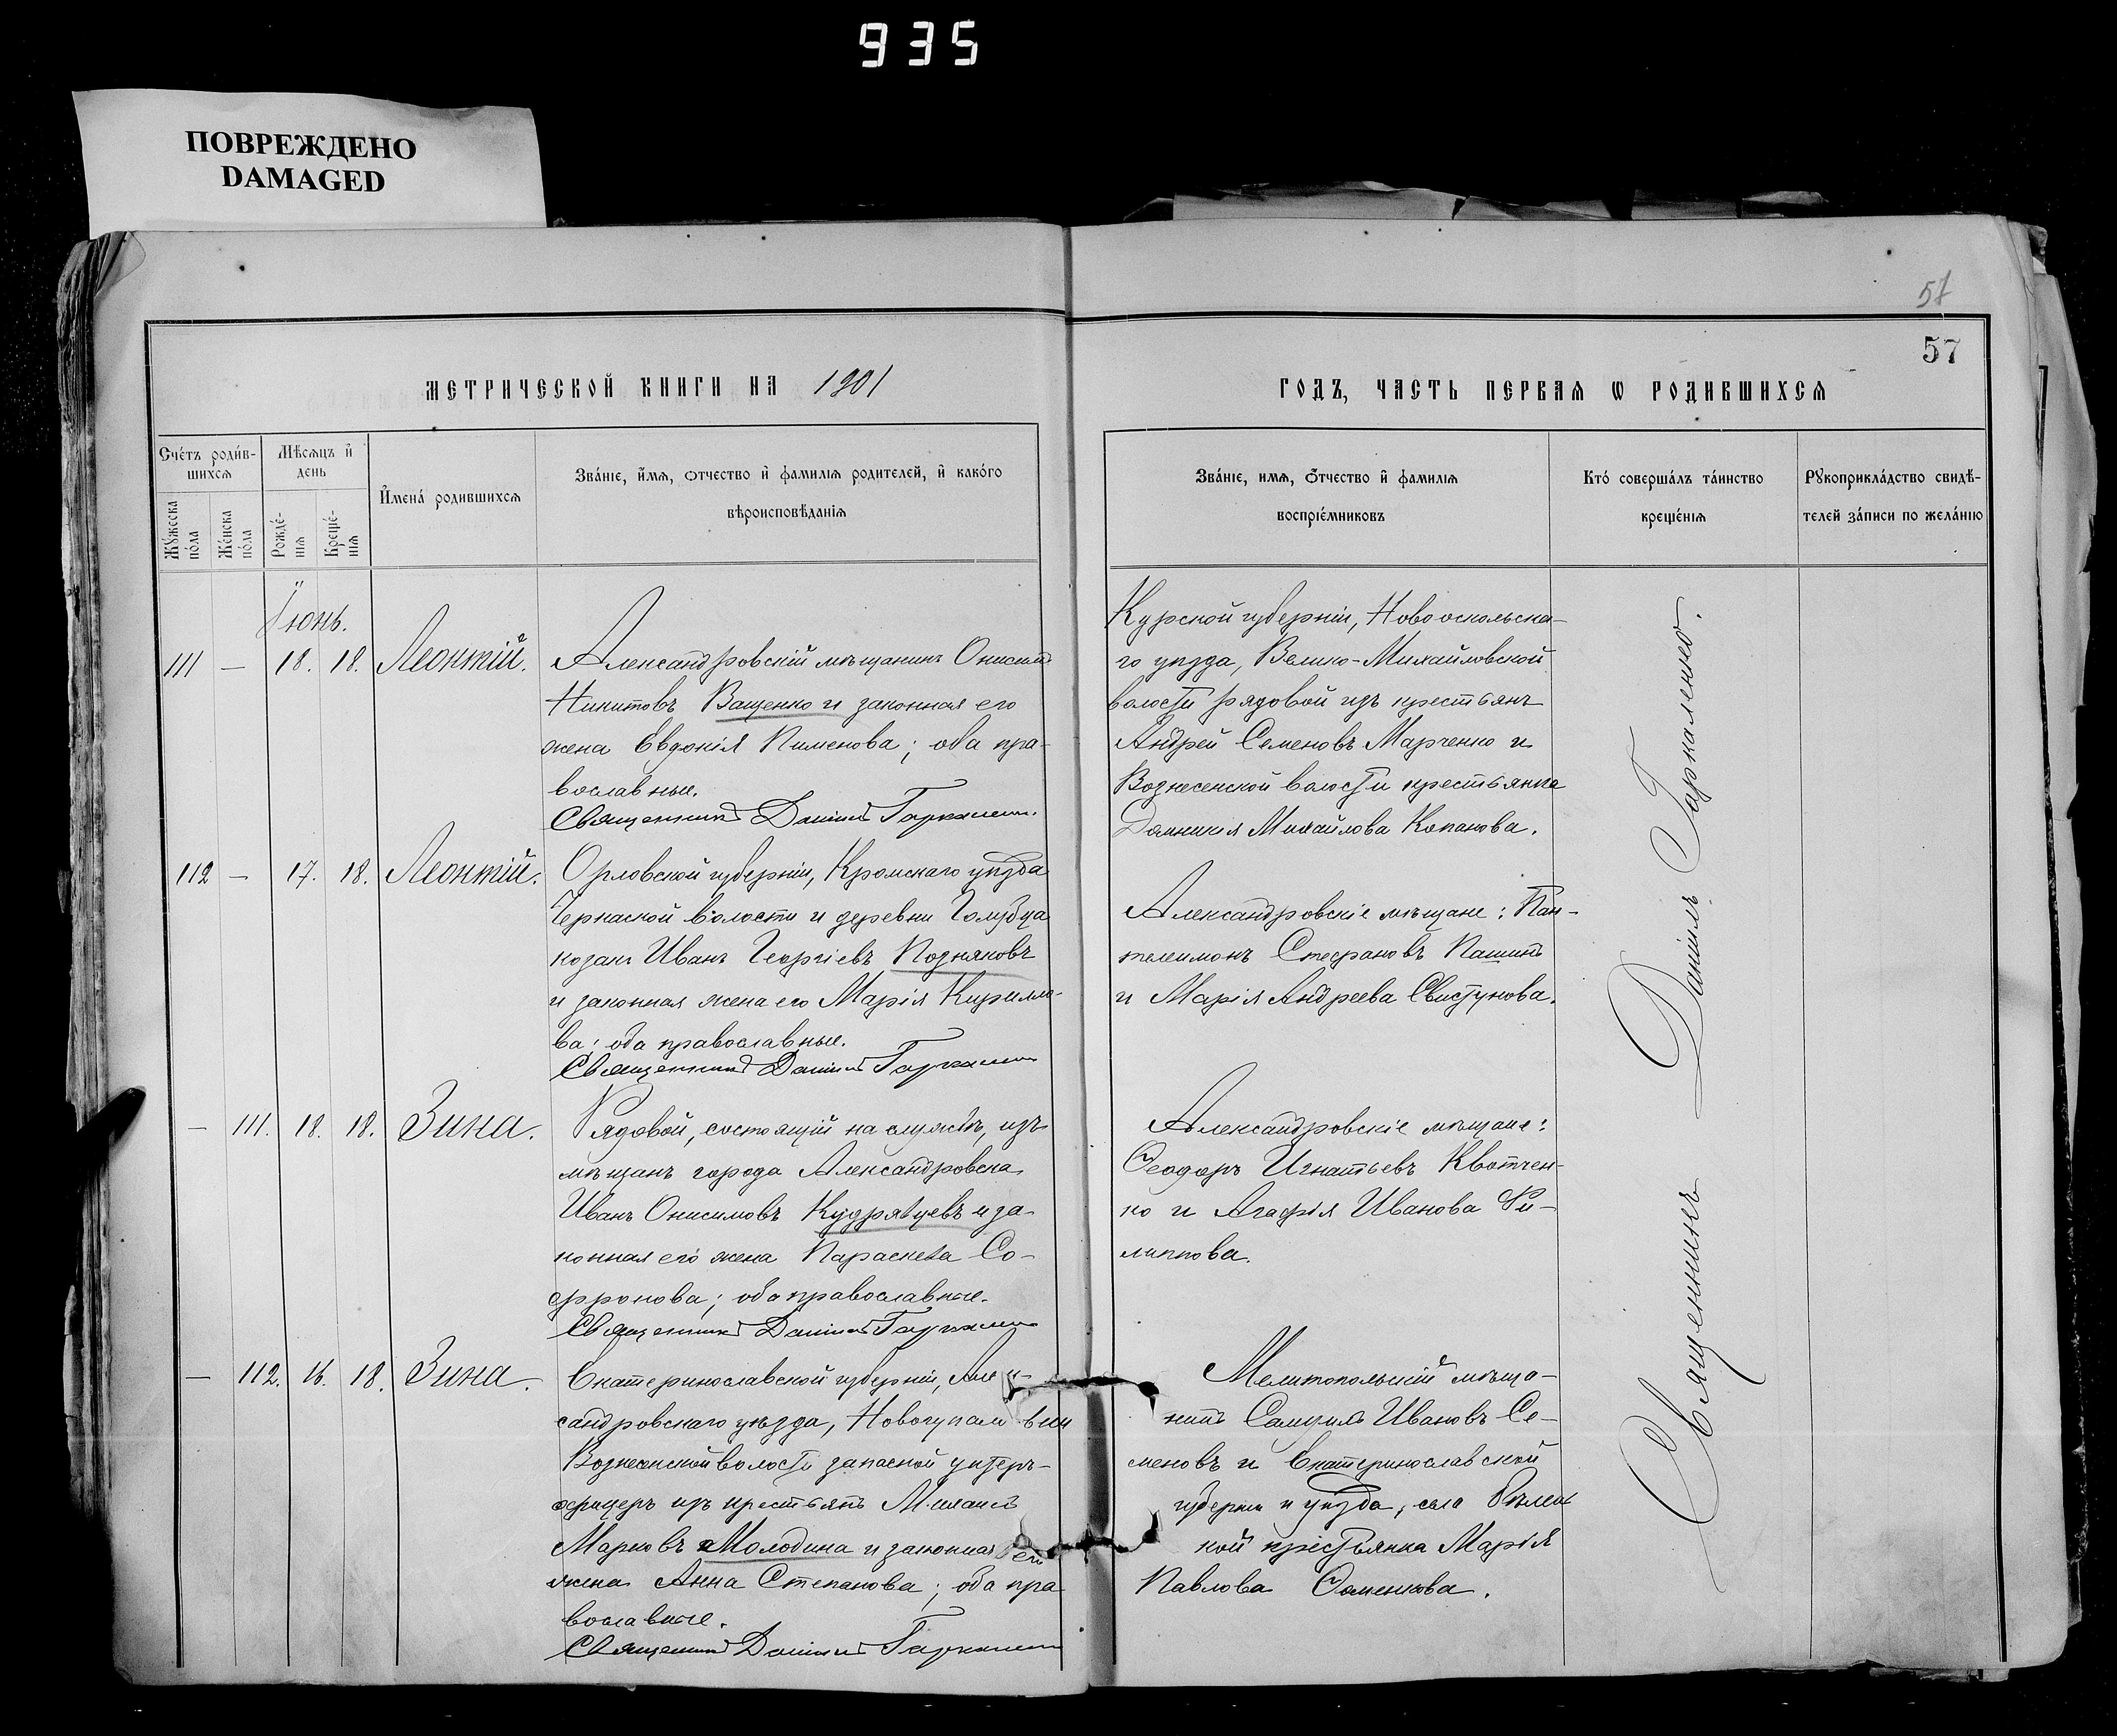 935
ПОВРЕЖДЕНО
DAMAGED
57
57
МЕТРИЧЕСКОЙ КНИГИ НА 1901
ГОДЪ, ЧАСТЬ ПЕРВАѦ Ѡ РОДИВШИХСѦ
Сче́тъ роди́в-
шихсѧ
Мѣсѧцъ и҆
день
И҆мена́ родившихсѧ
Зва́нїе, и҆́мѧ, ѻтчество и҆ фамилїѧ родителей, и҆ како́го
вѣроисповѣданїѧ
Мꙋ́жеска
по́ла
Же́нска
по́ла
Рожде́-
нїѧ
Креще́-
нїѧ
Зва́нїе, имѧ, ѻ҆́тчество и҆ фамилїѧ
воспрїе́мниковъ
Кто́ соверша́лъ та́инство
креще́нїѧ
Рꙋкоприкла́дство свидѣ́-
телей за́писи по жела́нїю
Іюнь.
111 — 18. 18. Леонтій.
Александровскій мѣщанинъ Онисимъ
Никитовъ Ващенко и законная его
жена Евдокія Пименова; оба пра-
вославные.
Священникъ Даніилъ Гаркаленко.
Курской губерніи, Новооскольска-
го уѣзда, Велико-Михайловской
волости рядовой изъ крестьянъ
Андрей Семеновъ Марченко и
Вознесенской волости крестьянка
Домникія Михайлова Копанова.
112 — 17. 18. Леонтій.
Орловской губерніи, Кромскаго уѣзда
Черкаской волости и деревни Голубца
козакъ Иванъ Георгіевъ Поздняковъ
и законная жена его Марія Кирилло-
ва; оба православные.
Священникъ Даніилъ Гаркаленко
Александровскіе мѣщане: Пан-
телеимонъ Стефановъ Пашинъ
и Марія Андреева Свистунова.
— 111. 18. 18. Зина.
Рядовой, состоящій на службѣ, изъ
мѣщанъ города Александровска
Иванъ Онисимовъ Кудрявцевъ и за-
конная его жена Параскева Со-
фронова; оба православные.
Священникъ Даніилъ Гаркаленко
Александровскіе мѣщане:
Ѳеодоръ Игнатьевъ Квотчен-
ко и Агафія Иванова Фи-
липпова.
— 112. 16. 18. Зина.
Екатеринославской губерніи, Алек-
сандровскаго уѣзда,
Вознесенской волости запасной унтеръ-
офицеръ изъ крестьянъ Михаилъ
Марковъ Молодика и законная его
жена Анна Степанова; оба пра-
вославные.
Священникъ Даніилъ Гаркаленко
Мелитопольскій мѣща-
нинъ Самуилъ Ивановъ Се-
меновъ и Екатеринославской
губерніи и уѣзда, села
кой крестьянка Марія
Павлова
Священникъ Даніилъ Гаркаленко.